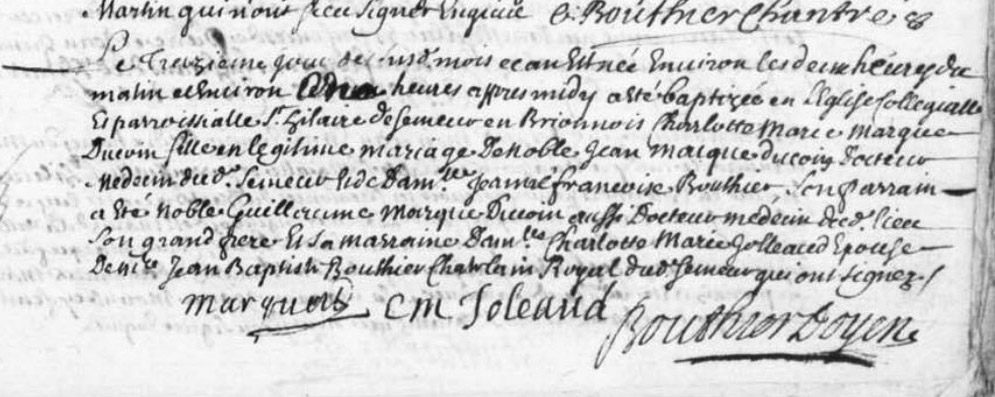 Martin qui n'ont sceu signer Enquis E. Bouthier Chantre
Le Treizieme jour desusd. mois et an Est née Environ les deux heures du
matin et Environ heures appres midy a esté baptizée en L'Eglise Collegialle
Et parroissialle St. hilaire de semeur en Brionnois Charlotte Marie Marque
Ducoin fille en legitime mariage De Noble Jean Marque ducoin Docteur
Medecin dud. Semeur et de Dam.lle Jeanne francoise Bouthier, son parrain
a Eté Noble Guillaume Marque Ducoin aussi Docteur medecin dud. lieu
son grand frere Et sa marraine Dam.lle Charlotte Marie Jolleaud Epouse
De Me. Jean Baptiste Bouthier Chatelain Royal dud. semeur qui ont signez /
C M Joleaud Bouthier Doyen